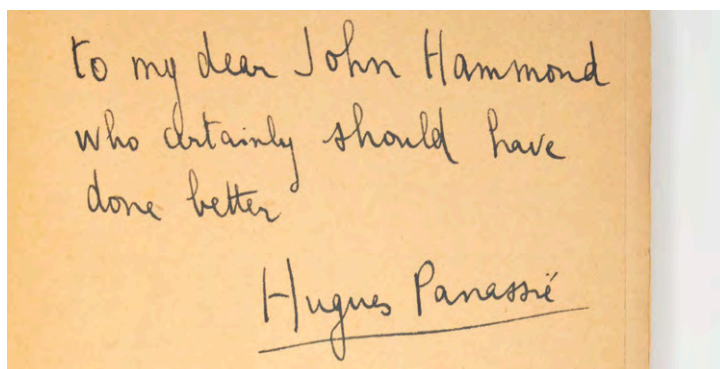 to my dear John Hammond
who certainly should have
done better
Hugues Panassié